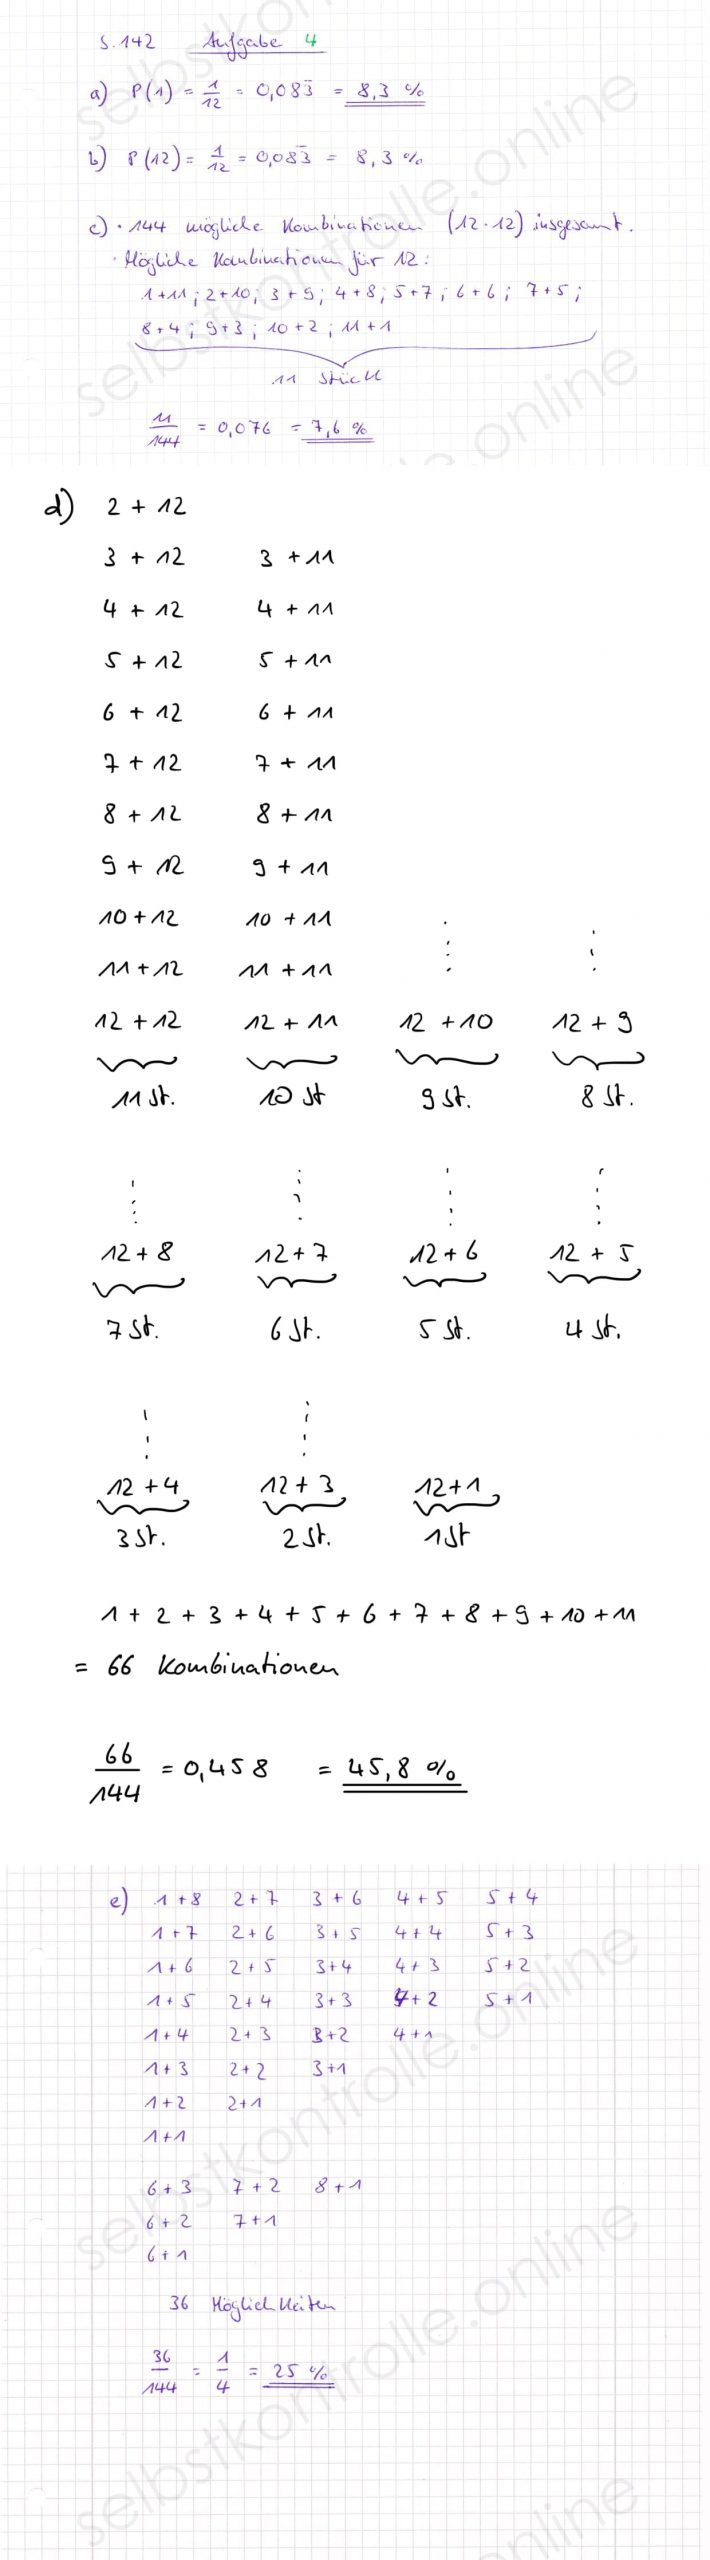 S. 142 Aufgabe 4
a) P(1) = 1/12 = 0,083̅ = 8,3 %
b) P(12) = 1/12 = 0,083̅ = 8,3 %
c) · 144 mögliche Kombinationen (12 · 12) insgesamt.
· Mögliche Kombinationen für 12:
1+11 ; 2+10 ; 3+9 ; 4+8 ; 5+7 ; 6+6 ; 7+5 ;
8+4 ; 9+3 ; 10+2 ; 11+1
11 Stück
11/144 = 0,076 = 7,6 %
d) 2 + 12
3 + 12 3 + 11
4 + 12 4 + 11
5 + 12 5 + 11
6 + 12 6 + 11
7 + 12 7 + 11
8 + 12 8 + 11
9 + 12 9 + 11
10 + 12 10 + 11
11 + 12 11 + 11
12 + 12 12 + 11 12 + 10 12 + 9
11 St. 10 St 9 St. 8 St.
12 + 8 12 + 7 12 + 6 12 + 5
7 St. 6 St. 5 St. 4 St.
12 + 4 12 + 3 12 + 1
3 St. 2 St. 1 St
1 + 2 + 3 + 4 + 5 + 6 + 7 + 8 + 9 + 10 + 11
= 66 Kombinationen
66/144 = 0,458 = 45,8 %
e) 1+8 2+7 3+6 4+5 5+4
1+7 2+6 3+5 4+4 5+3
1+6 2+5 3+4 4+3 5+2
1+5 2+4 3+3 4+2 5+1
1+4 2+3 3+2 4+1
1+3 2+2 3+1
1+2 2+1
1+1
6+3 7+2 8+1
6+2 7+1
6+1
36 Möglichkeiten
36/144 = 1/4 = 25 %
selbstkontrolle.online
selbstkontrolle.online
selbstkontrolle.online
selbstkontrolle.online